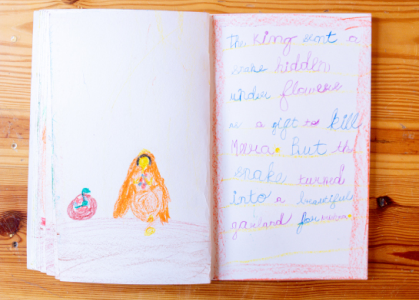 The King sent a
snake hidden
under flowers
as a gift to kill
Meera. But the
snake turned
into a beautiful
garland for